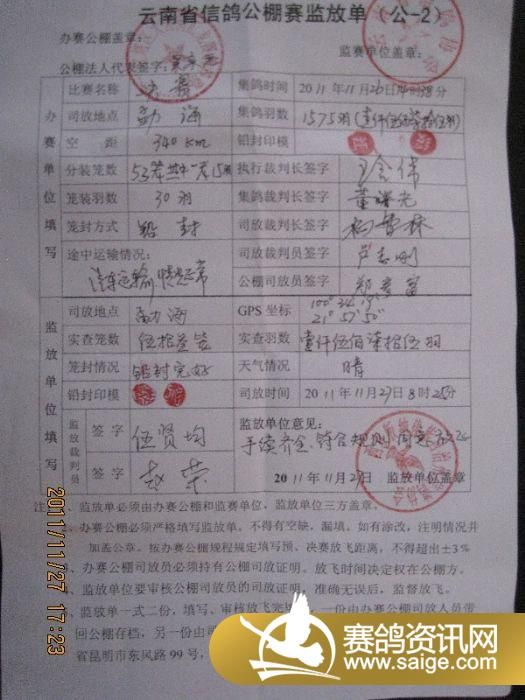 云南省信鸽公棚赛监放单（公-2）
办赛公棚盖章： 监赛单位盖章：
公棚法人代表签字：
办赛单位填写
比赛名称 决赛 集鸽时间 2011年11月26日 分
司放地点 勐海 集鸽羽数 1575羽
空距 340km 铅封印模
分装笼数 执行裁判长签字
笼装羽数 30羽 集鸽裁判长签字
笼封方式 铅封 司放裁判长签字 杨雪林
途中运输情况： 司放裁判员签字 卢志刚
汽车运输，情况正常 公棚司放员签字
监放单位填写
司放地点 勐海 GPS坐标
21° 57′ 50″
实查笼数 伍拾叁笼 实查羽数 壹仟伍佰柒拾伍羽
笼封情况 铅封完好 天气情况 晴
铅封印模 司放时间 2011年11月27日8时25分
监放裁判员
签字 伍贤均 监放单位意见：
手续齐全、符合规则，同意
签字 赵荣 2011年11月27日 监放单位盖章
注：一、监放单必须由办赛公棚和监赛单位，监放单位三方盖章。
二、办赛公棚必须严格填写监放单，不得有空缺，漏填，如有涂改，注明情况并
加盖公章。按办赛公棚规程规定填写预、决赛放飞距离，不得超出±3%
、办赛公棚司放员必须持有公棚司放证明。放飞时间决定权在公棚方。
、监放单位要审核公棚司放员的司放证明，准确无误后，监督放飞。
、监放单一式二份，填写、审核放飞完 一份由办赛公棚司放人员带
回公棚存档，另一份由
省昆明市东风路99号，
2011/11/27 17:23
赛鸽资讯网
www.saige.com